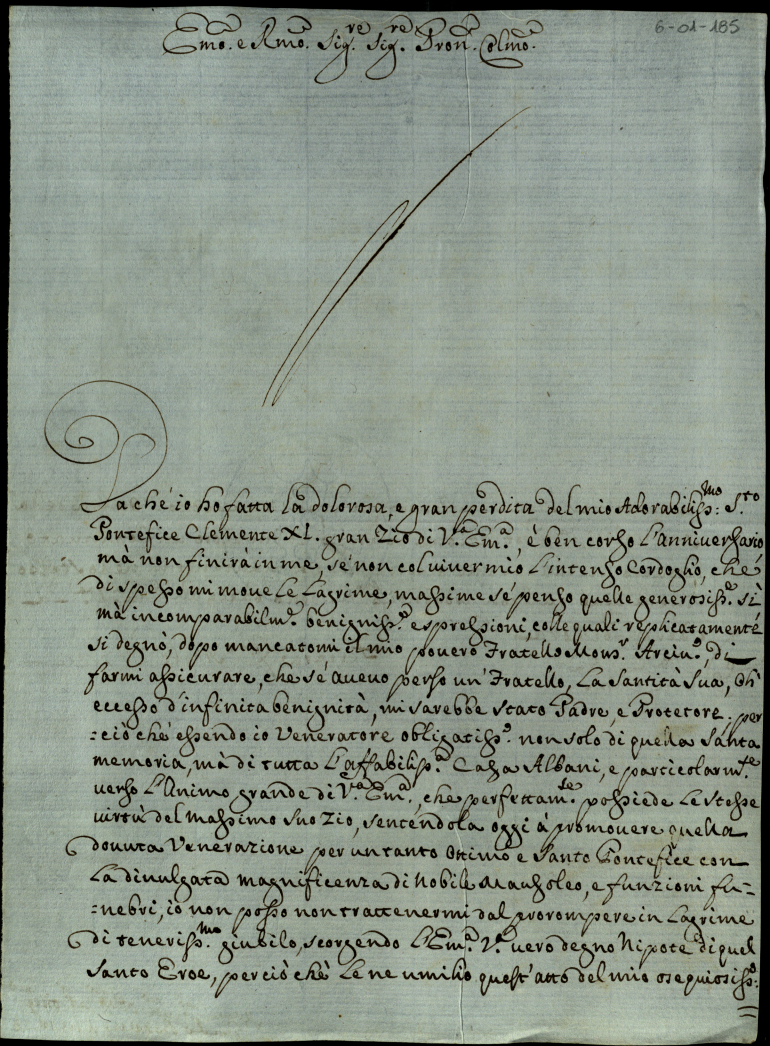 6-01-185
Em̃o. e Rm̃o. Sig.re Sig.re Pron. Colm̃o.
Da ché io hò fatta la dolorosa, e gran perdita del mio Adorabiliss:mo S.to
Pontefice Clemente XI. gran Zio di V.a Em.a, è ben corso l'anniversario
mà non finirà in me, sé non col viver mio l'intenso Cordoglio, ché
di spesso mi move le lagrime, massime sé penso quelle generosiss.e sì
mà incomparabilm.e benigniss.e espressioni, colle quali replicatamenté
si degnò, dopo mancatomi il mio povero Fratello Mons.r Arciv.o, di
farmi assicurare, che sé avevo perso un' Fratello, La Santità Sua, di
eccesso d'infinita benignità, mi sarebbe stato Padre, e Protetore. per
=ciò ché essendo io Veneratore obligatiss.o non solo di quella Santa
memoria, mà di tutta l'affabiliss.a Casa Albani, e particolarm.te
verso l'Animo grande di V.a Em.a, che perfettam.te possiede le stesse
virtù del massimo suo Zio, sentendola oggi à promovere quella
dovuta Venerazione per un tanto Ottimo e Santo Pontefice con
La divulgata magnificenza di Nobile Mausoleo, e funzioni fu=
=nebri, io non posso non trattenermi dal prorompere in Lagrime
di teneriss.mo giubilo, scorgendo l'Em.a V.a vero degno Nipote di quel
Santo Eroe, perciò ché Le ne umilio quest'atto del mio ossequiosiss:o